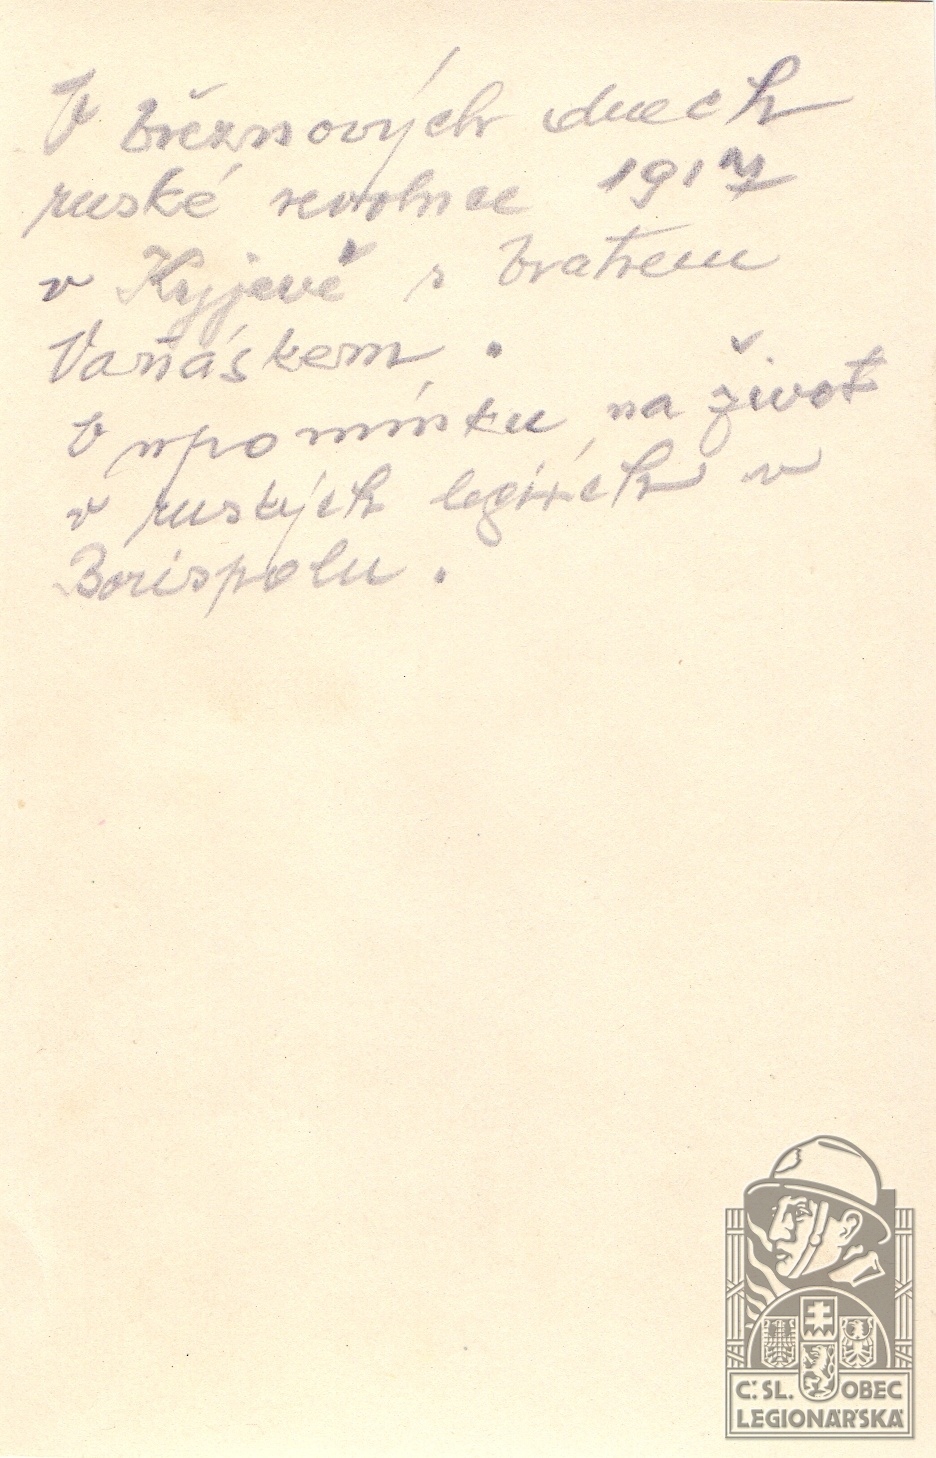 V březnových dnech
ruské revoluce 1917
v Kyjevě s bratrem
Vaňáskem.
V upomínku na život
v ruských legiích v
Borispolu.
Č.SL. OBEC
LEGIONÁŘSKÁ